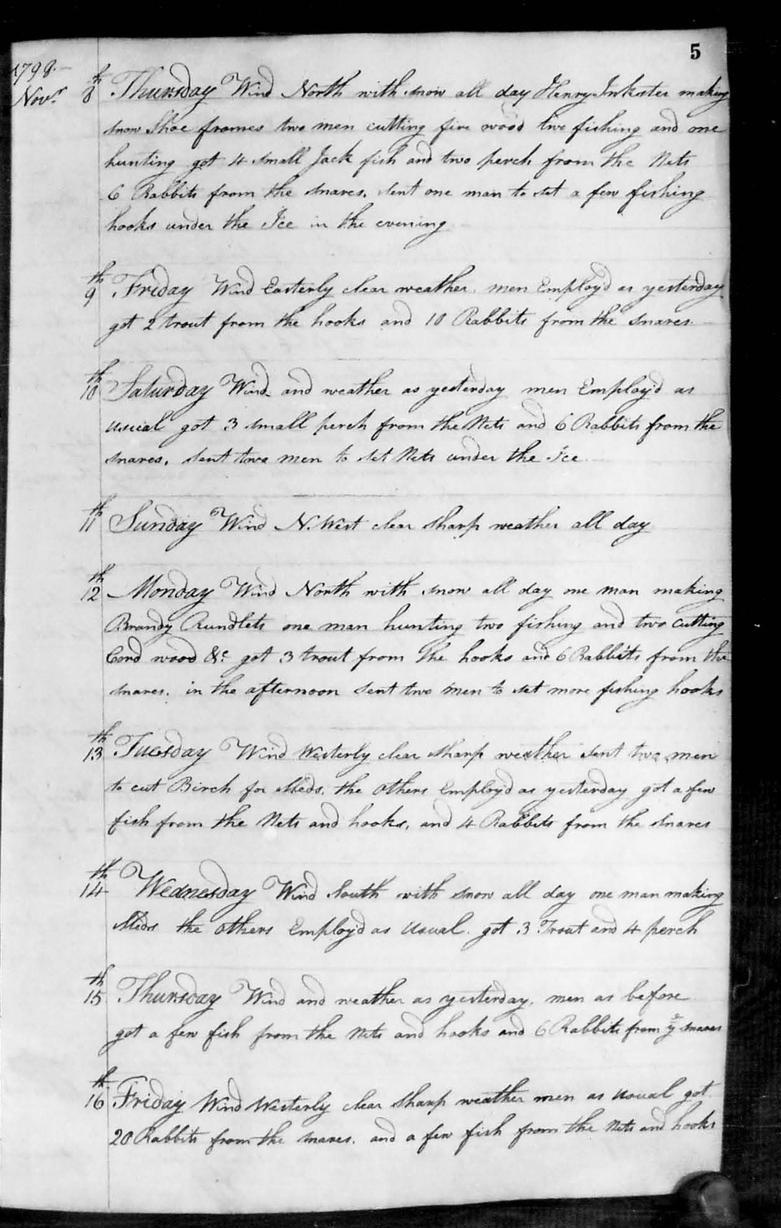 5
1798.
Novr. 8th Thursday Wind North with snow all day Henry Inkster making
snow Shoe frames two men cutting fire wood two fishing and one
hunting got 4 small Jack fish and two perch from the Nets
6 Rabbits from the snares. sent one man to set a few fishing
hooks under the Ice in the evening
9th Friday Wind Easterly clear weather. men Employ'd as yesterday
got 2 trout from the hooks and 10 Rabbits from the snares.
10th Saturday Wind and weather as yesterday men Employ'd as
usual got 3 small perch from the Nets and 6 Rabbits from the
snares. sent two men to set Nets under the Ice
11th Sunday Wind N.West clear sharp weather all day
12th Monday Wind North with snow all day one man making
Brandy Rundlets one man hunting two fishing and two cutting
Cord wood &c. got 3 trout from the hooks and 6 Rabbits from the
snares. in the afternoon sent two men to set more fishing hooks
13th Tuesday Wind Westerly clear sharp weather sent two men
to cut Birch for Sleds. the others Employ'd as yesterday got a few
fish from the Nets and hooks, and 4 Rabbits from the snares
14th Wednesday Wind South with snow all day one man making
Sleds the others Employ'd as usual. got 3 Trout and 4 perch
15th Thursday Wind and weather as yesterday. men as before
got a few fish from the Nets and hooks and 6 Rabbits from ye snares
16th Friday Wind Westerly clear sharp weather men as usual got
20 Rabbits from the snares. and a few fish from the Nets and hooks